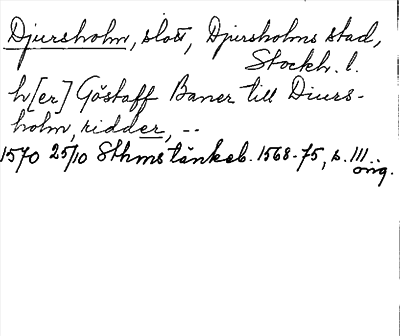 Djursholm, slott, Djursholms stad,
Stockh. l.
h[er] Göstaff Baner till Diurs-
holm, ridder, --
1570 25/10 Sthms tänkeb. 1568-75, s. 111
orig.